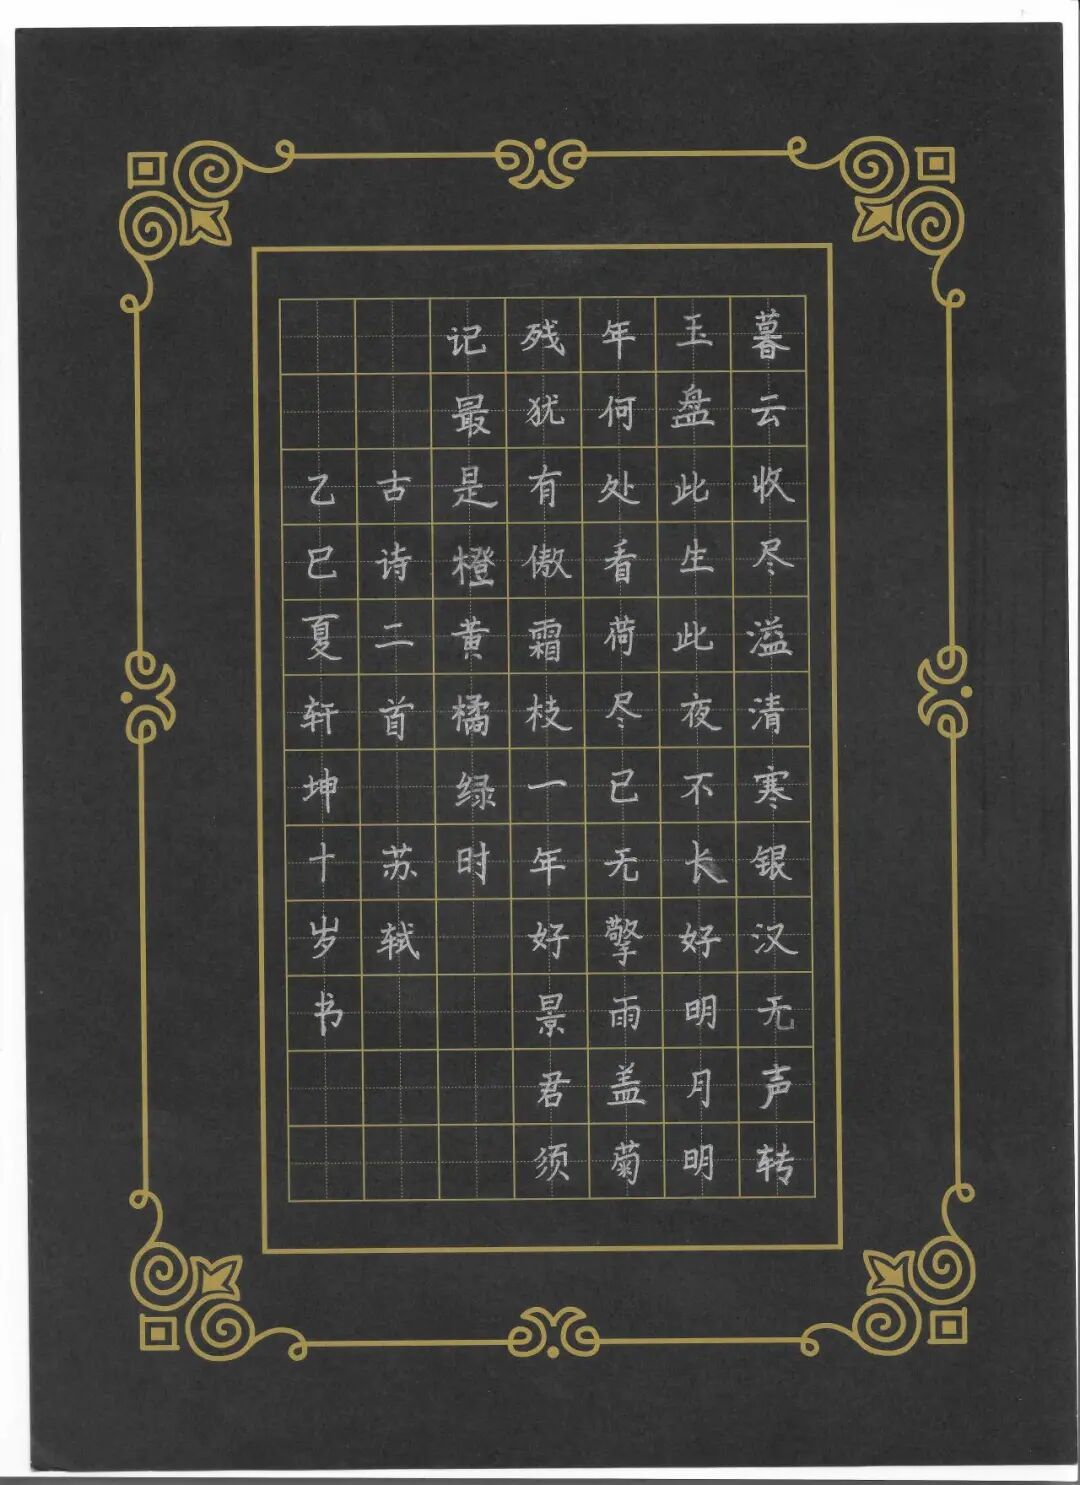 暮云收尽溢清寒银汉无声转
玉盘此生此夜不长好明月明
年何处看荷尽已无擎雨盖菊
残犹有傲霜枝一年好景君须
记最是橙黄橘绿时
古诗二首 苏轼
乙巳夏轩坤十岁书